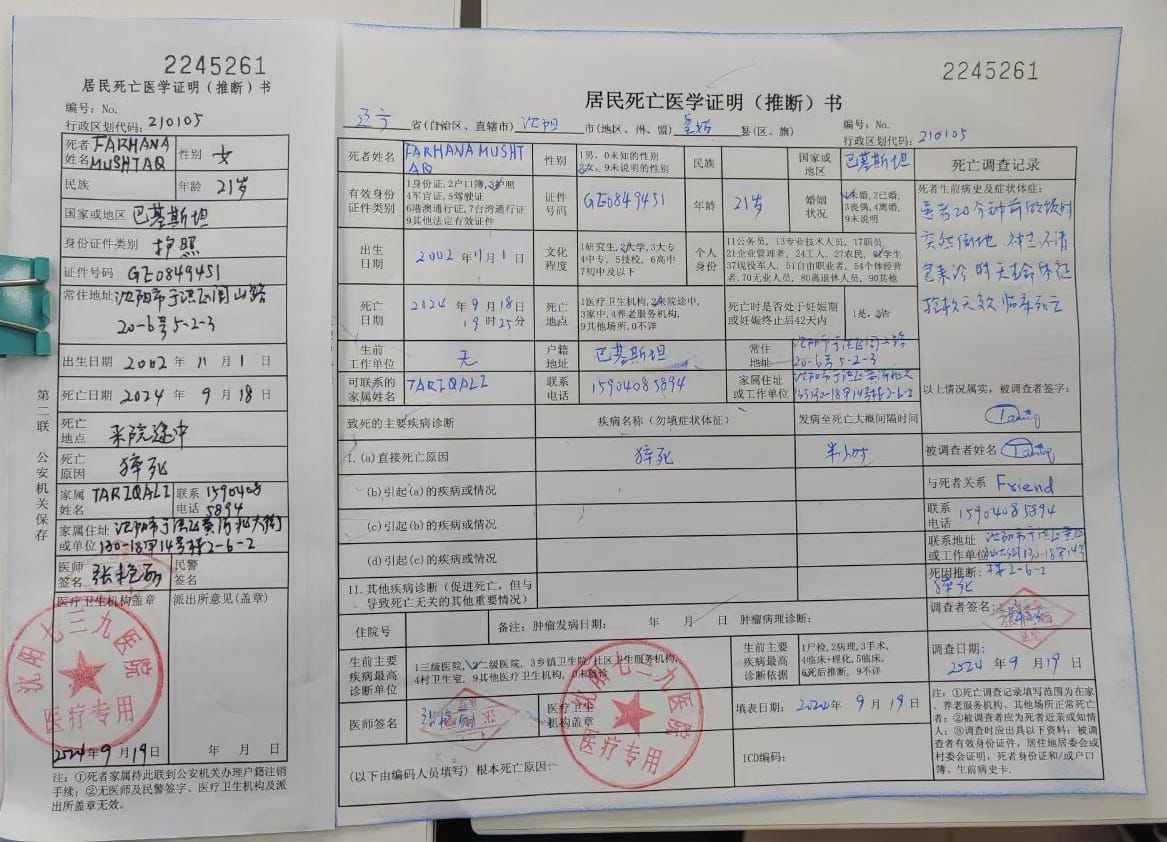 2245261
居民死亡医学证明（推断）书
编号：No.
行政区划代码：210105
死者姓名 FARHANA MUSHTAQ 性别 女
民族 年龄 21岁
国家或地区 巴基斯坦
身份证件类别 护照
证件号码 GE0849451
常住地址 沈阳市于洪区闾山路
20-6号5-2-3
出生日期 2002 年 11 月 1 日
死亡日期 2024 年 9 月 18 日
死亡地点 来院途中
死亡原因 猝死
家属姓名 TARIQALI 联系电话 15904085894
家属住址或单位 沈阳市于洪区黄河北大街
130-18甲14号楼2-6-2
医师签名 民警签名
医疗卫生机构盖章 派出所意见(盖章)
沈阳七三九医院
医疗专用
2024年 9 月 19 日 年 月 日
注：①死者家属持此联到公安机关办理户籍注销
手续；②无医师及民警签字、医疗卫生机构及派
出所盖章无效。
第二联 公安机关保存
2245261
居民死亡医学证明（推断）书
辽宁 省(自治区、直辖市) 沈阳 市(地区、州、盟) 皇姑 县(区、旗)
编号：No.
行政区划代码：210105
死者姓名 FARHANA MUSHTAQ 性别 1男，0未知的性别 2女，9未说明的性别 民族 国家或地区 巴基斯坦
有效身份证件类别 1身份证，2户口簿，3护照 4军官证，5驾驶证 6港澳通行证，7台湾通行证 9其他法定有效证件 证件号码 GE0849451 年龄 21岁 婚姻状况 1未婚，2已婚，3丧偶，4离婚，9未说明
出生日期 2002 年 11 月 1 日 文化程度 1研究生，2大学，3大专 4中专，5技校，6高中 7初中及以下 个人身份 11公务员，13专业技术人员，17职员，21企业管理者，24工人，27农民，31学生 37现役军人，51自由职业者，54个体经营者，70无业人员，80离退休人员，90其他
死亡日期 2024 年 9 月 18 日 19 时 25 分 死亡地点 1医疗卫生机构，2来院途中，3家中，4养老服务机构，9其他场所，0不详 死亡时是否处于妊娠期或妊娠终止后42天内 1是，2否
生前工作单位 无 户籍地址 巴基斯坦 常住地址 沈阳市于洪区闾山路 20-6号5-2-3
可联系的家属姓名 TARIQALI 联系电话 15904085894 家属住址或工作单位 沈阳市于洪区黄河北大街130-18甲14号楼2-6-2
致死的主要疾病诊断 疾病名称（勿填症状体征） 发病至死亡大概间隔时间
I.(a)直接死亡原因 猝死 半小时
(b)引起(a)的疾病或情况
(c)引起(b)的疾病或情况
(d)引起(c)的疾病或情况
II.其他疾病诊断（促进死亡，但与
导致死亡无关的其他重要情况）
住院号 备注：肿瘤发病日期： 年 月 日 肿瘤病理诊断：
生前主要疾病最高诊断单位 1三级医院，2二级医院，3乡镇卫生院/社区卫生服务机构，4村卫生室，9其他医疗卫生机构，0未就诊 生前主要疾病最高诊断依据 1尸检，2病理，3手术，4临床+理化，5临床，6死后推断，9不详
医师签名 医疗卫生机构盖章 填表日期： 2024 年 9 月 19 日
沈阳七三九医院
医疗专用
(以下由编码人员填写) 根本死亡原因： ICD编码：
死亡调查记录
死者生前病史及症状体征：
患者20分钟前做饭时
突然倒地，神志不清
来诊时无生命体征
抢救无效 临床死亡
以上情况属实，被调查者签字：
被调查者姓名
与死者关系 Friend
联系电话 15904085894
联系地址或工作单位 沈阳市于洪区黄河北大街130-18甲14号
楼2-6-2
死因推断：
猝死
调查者签名：
调查日期：
2024 年 9 月 19 日
注：①死亡调查记录填写范围为在家
、养老服务机构、其他场所正常死亡
者；②被调查者应为死者近亲或知情
人；③调查时应出具以下资料：被调
查者有效身份证件，居住地居委会或
村委会证明，死者身份证和/或户口
簿、生前病史卡.